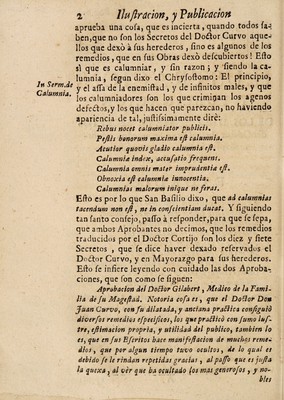 2 Ilustracion, y Publicacion
aprueba una cosa, que es incierta, quando todos sa-
ben, que no son los Secretos del Doctor Curvo aque-
llos que dexò à sus herederos, sino es algunos de los re-
medios, que en sus Obras dexò descubiertos! Esto
sì que es calumniar, y sin razon; y siendo la ca-
In Serm. de
Calumnia.
lumnia, segun dixo el Chrysostomo: El principio,
y el assa de la enemistad, y de infinitos males, y que
los calumniadores son los que criminan los agenos
defectos, y los que hacen que parezcan, no haviendo
apariencia de tal, justissimamente dirè:
Rebus nocet calumniator publicis.
Pestis bonorum maxima est calumnia.
Acutior quovis gladio calumnia est.
Calumniæ index, accusatio frequens.
Calumnia omnis mater imprudentia est.
Obnoxia est calumniæ innocentia.
Calumnias malorum inique ne feras.
Esto es por lo que San Basilio dixo, que ad calumnias
tacendum non est, ne in conscientiam ducat. Y siguiendo
tan santo consejo, passo à responder, para que se sepa,
que ambos Aprobantes no decimos, que los remedios
traducidos por el Doctor Cortijo son los diez y siete
Secretos, que se dice haver dexado reservados el
Doctor Curvo, y en Mayorazgo para sus herederos.
Esto se infiere leyendo con cuidado las dos Aproba-
ciones, que son como se siguen:
Aprobacion del Doctor Gilabert, Medico de la Fami-
lia de su Magestad. Notoria cosa es, que el Doctor Don
Juan Curvo, con su dilatada, y anciana practica consiguiò
diversos remedios especificos, los que practicò con sumo lus-
tre, estimacion propria, y utilidad del publico, tambien lo
es, que en sus Escritos hace manifestacion de muchos reme-
dios, que por algun tiempo tuvo ocultos, de lo qual es
debido se le rindan repetidas gracias, al passo que es justa
la quexa, al vèr que ha ocultado los mas generosos, y no-
bles